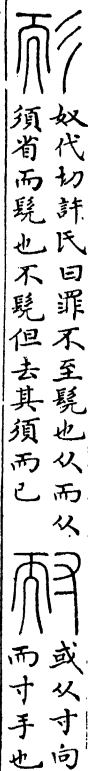 耏
奴代切許氏曰罪不至髡也从而从
須省而髡也不髡但去其須而已
耐
或从寸向
而寸手也